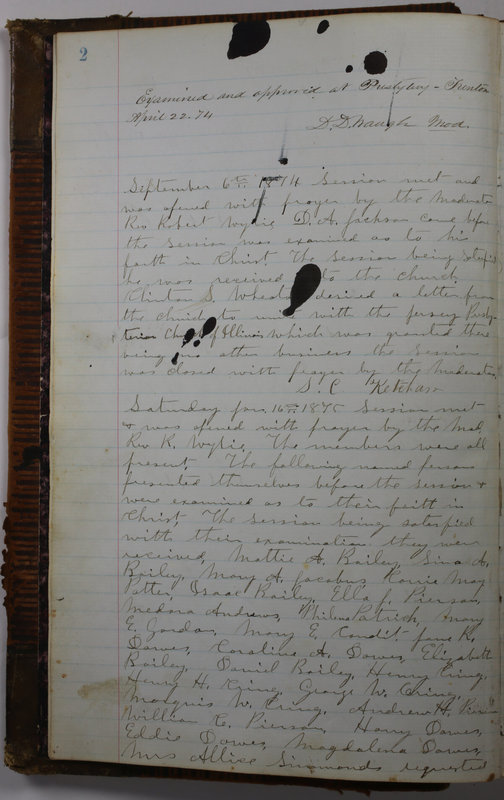 2
Examined and approved at Presbytery - Trenton
April 22. 74
D. D. Waugh Mod.
September 6th 1874 Session met and
was opened with prayer by the Moderator
Rev Robert Wylie D. A. Jackson came before
the Session was examined as to his
faith in Christ The Session being satisfied
he was received to the Church.
Clinton S. desired a letter from
the church to unite with the Jersey Presby-
terian Church of Illinois which was granted there
being no other business the Session
was closed with prayer by the Moderator
S C Ketcham
Saturday Jan. 16th 1875 Session met
& was opened with prayer by the Mod.
Rev R. Wylie. The members were all
present. The following named persons
presented themselves before the Session &
were examined as to their faith in
Christ. The Session being satisfied
with their examination they were
received, Mattie A. Bailey, Sina A.
Bailey, Mary A. Jacobus Carrie May
Potter Isaac Bailey, Ella J. Pierson,
Medora Andrews, Patrick, Mary
E. Jordan, Mary E. Condit- Jane R.
Dowes, Caroline A. Dowes, Elizabeth
Bailey, Daniel Bailey, Henry Cring,
Henry H. Cring, George W. Cring,
Marquis W. Cring, Andrew H.
William C. Pierson, Harry Dowes,
Eddie Dowes, Magdalena Dowes,
Mrs Allice Simmonds requested